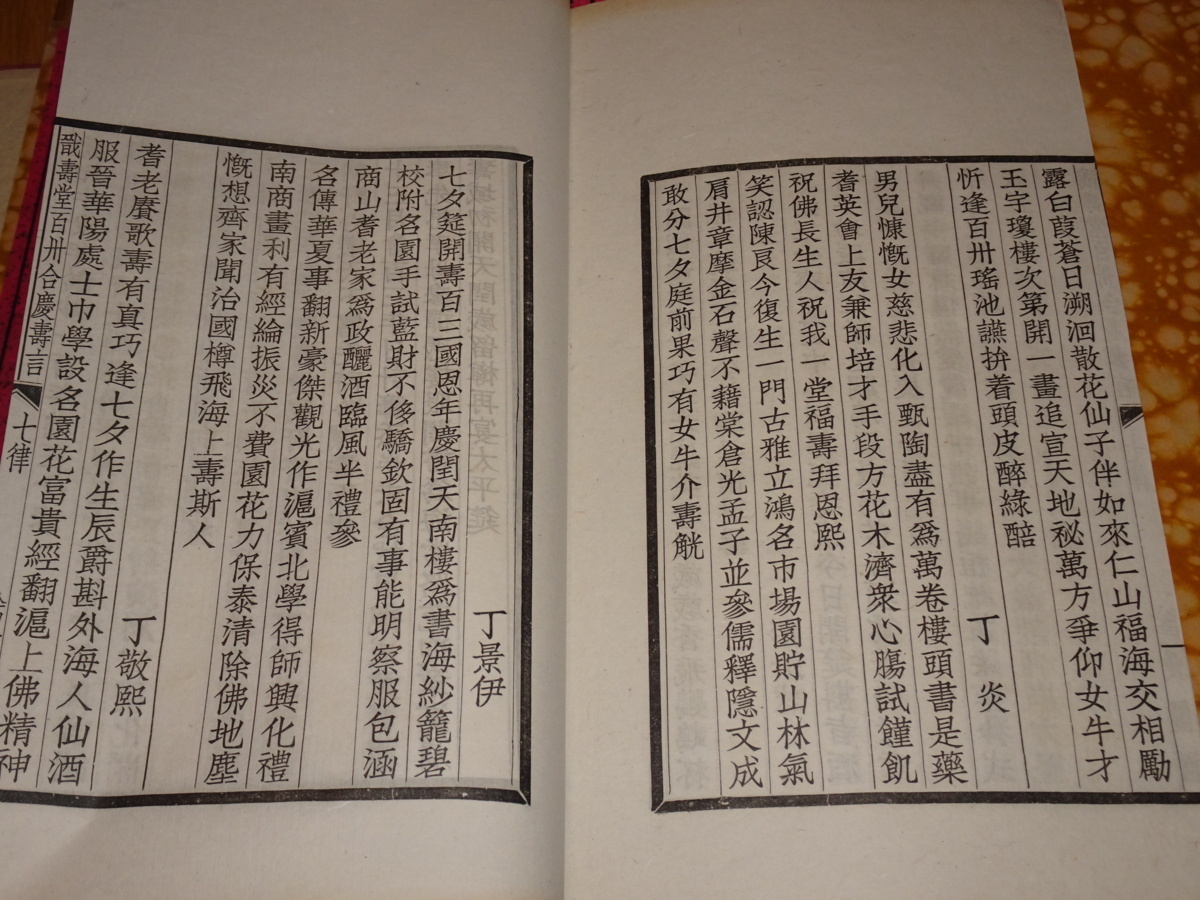 露白葭蒼日溯洄散花仙子伴如來仁山福海交相勵
玉宇瓊樓次第開一畫追宣天地祕萬方爭仰女牛才
忻逢百卅瑤池讌拚着頭皮醉綠醅
丁炎
男兒慷慨女慈悲化入甄陶盡有爲萬卷樓頭書是藥
耆英會上友兼師培才手段方花木濟衆心腸試饉飢
祝佛長生人祝我一堂福壽拜恩熙
笑認陳艮今復生一門古雅立鴻名市場園貯山林氣
肩井章摩金石聲不藉棠倉光孟子並參儒釋隱文成
敢分七夕庭前果巧有女牛介壽觥
丁景伊
七夕筵開壽百三國恩年慶閏天南樓爲書海紗籠碧
校附名園手試藍財不侈驕欽固有事能明察服包涵
商山耆老家爲政釃酒臨風半禮參
名傳華夏事翻新豪傑觀光作滬賓北學得師興化禮
南商畫利有經綸振災不費園花力保泰清除佛地塵
慨想齊家聞治國樽飛海上壽斯人
丁敬熙
耆老賡歌壽有真巧逢七夕作生辰爵斟外海人仙酒
服晉華陽處士巾學設名園花富貴經翻滬上佛精神
戩壽堂百卅合慶壽言
七律